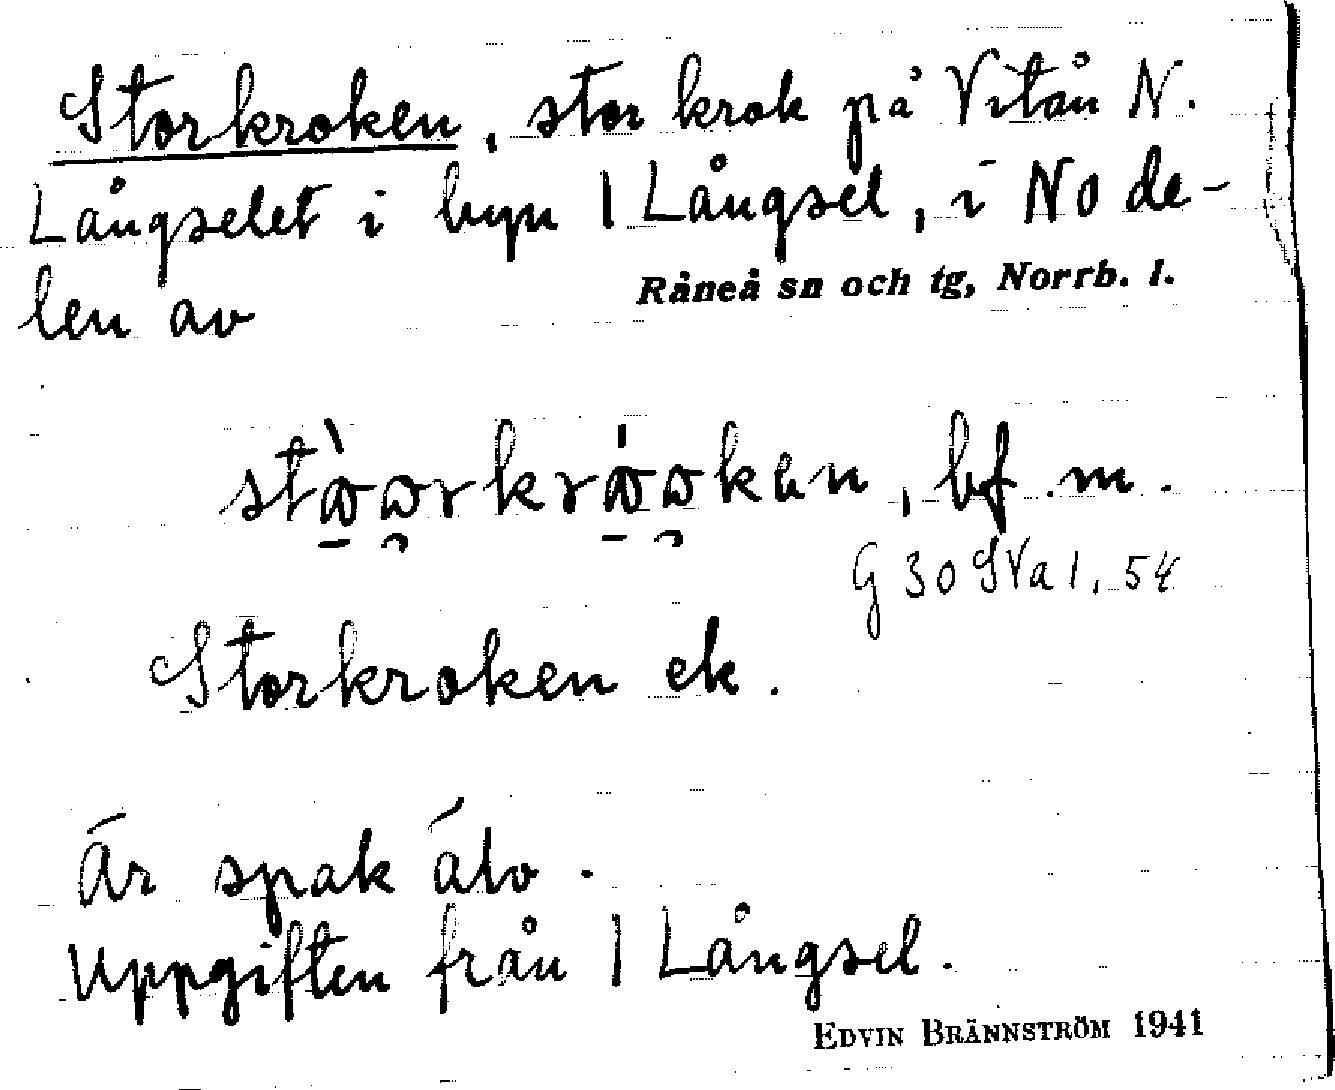 Storkroken, stor krok på Vitån N.
Långselet i byn 1 Långsel, i NO de-
len av Råneå sn och tg, Norrb. l.
bf. m.
G 30 SVa 1, 54
Storkroken ek.
Är spak älv.
Uppgiften från 1 Långsel.
EDVIN BRÄNNSTRÖM 1941